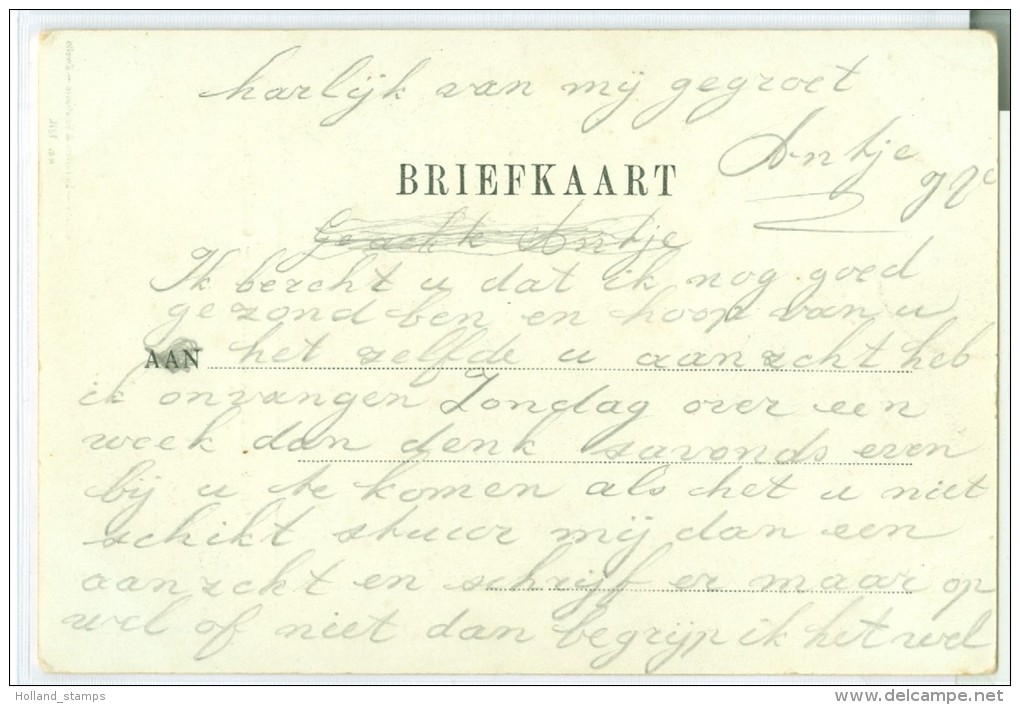 harlijk van mij gegroet
Antje
BRIEFKAART
Geachte Antje
Ik bercht u dat ik nog goed
gezond ben en hoop van u
AAN het zelfde u aanzcht heb
ik onvangen Zondag over een
week dan denk savonds even
bij u te komen als het u niet
schikt stuur mij dan een
aanzckt en schrijf er maar op
wel of niet dan begrijp ik het wel
Holland_stamps
www.delcampe.net